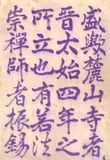 盛歟麓山寺者
晉太始四年之
所立也有若法
崇禪師者振錫